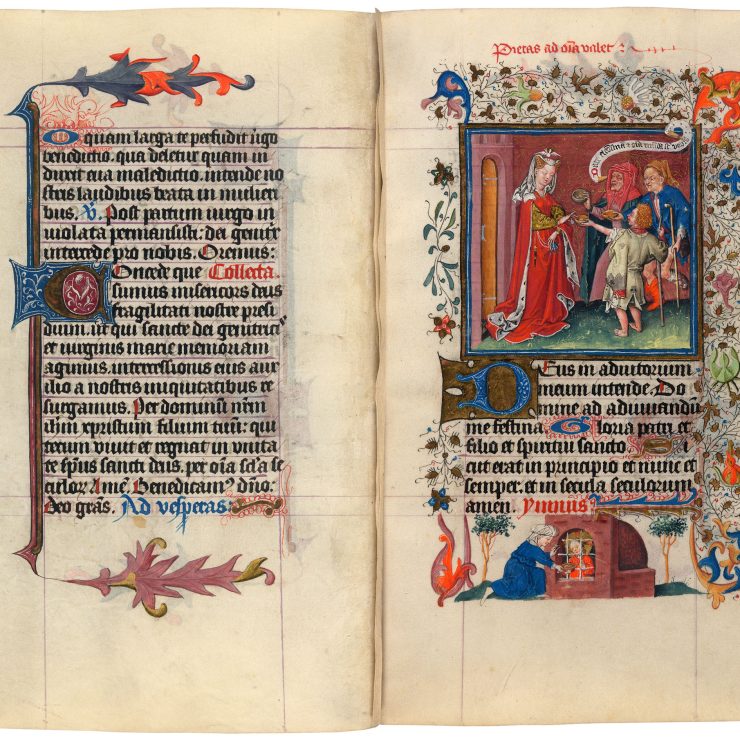 O quam larga te perfudit virgo
benedictio. qua deletur quam in
duxit eua maledictio. intende no
stris laudibus beata in mulieri
bus. V. Post partum virgo in
violata permansisti: dei genitrix
intercede pro nobis. Oremus:
Concede que Collecta
sumus misericors deus
fragilitati nostre presi
dium. ut qui sancte dei genitrici
et virginis marie memoriam
agimus. intercessionis eius aux
ilio a nostris iniquitatibus re
surgamus. Per dominum nrm
ihm xpristum filium tuu: qui
tecum vivit et regnat in unita
te spus sancti deus. per oia scla se
culor. Ame. Benedicam9 dno:
Deo gras. Ad vesperas
Pietas ad oia valet
Deus in adiutorium
meum intende. Do
mine ad adiuuandu
me festina. Gloria patri et
filio et spiritui sancto. Si
cut erat in principio et nunc et
semper. et in secula seculorum
amen. Ymnus